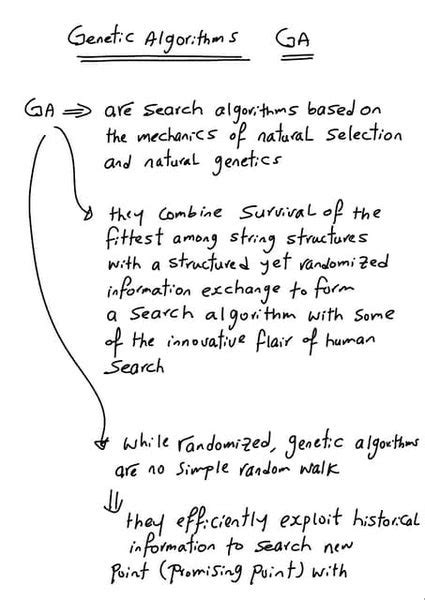 Genetic Algorithms GA
GA ⇒ are search algorithms based on
the mechanics of natural selection
and natural genetics
they combine survival of the
fittest among string structures
with a structured yet randomized
information exchange to form
a search algorithm with some
of the innovative flair of human
search
while randomized, genetic algorithms
are no simple random walk
they efficiently exploit historical
information to search new
point (promising point) with